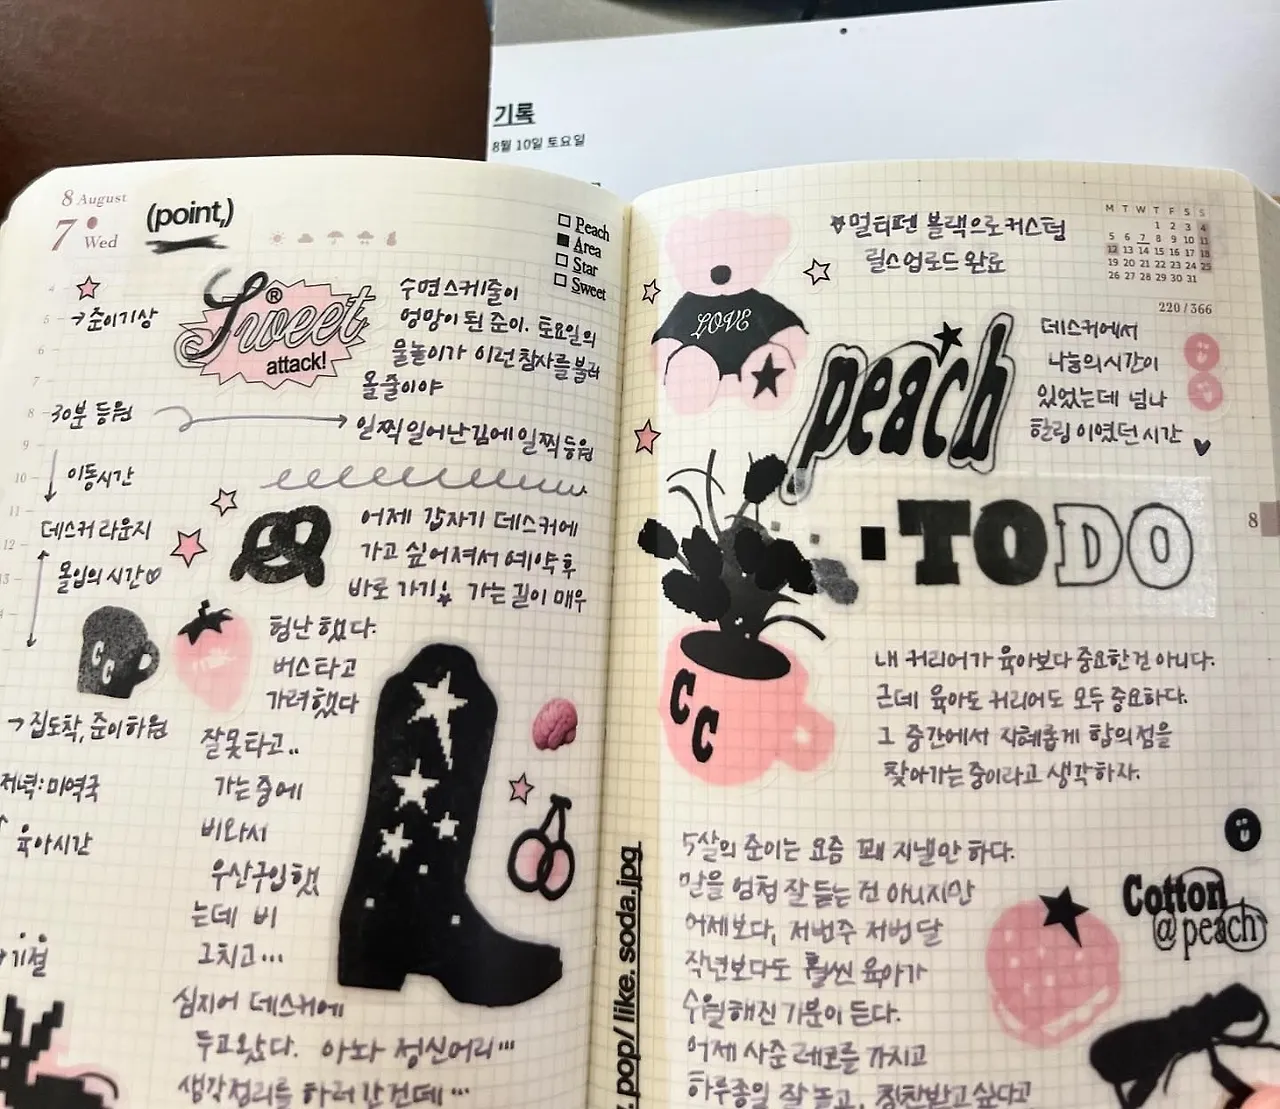 기록
8월 10일 토요일
8 August
7 Wed
(point,)
Peach
Area
Star
Sweet
4
5
6
7
8
10
11
12
13
→준이기상
30분 등원
이동시간
데스커 라운지
몰입의 시간♡
→집도착, 준이하원
저녁:미역국
육아시간
기절
Sweet®
attack!
수면스케줄이
엉망이 된 준이. 토요일의
물놀이가 이런 참사를 불러
올줄이야
일찍일어난김에 일찍등원
어제 갑자기 데스커에
가고 싶어져서 예약 후
바로 가기! 가는길이 매우
험난했다.
버스타고
가려했다
잘못타고..
가는중에
비와서
우산구입했
는데 비
그치고...
심지어 데스커에
두고왔다. 아놔 정신머리...
생각정리를 하러간건데...
CC
.pop/ like. soda.jpg
LOVE
멀티펜 블랙으로커스텀
릴스업로드 완료
M T W T F S S
1 2 3 4
5 6 7 8 9 10 11
12 13 14 15 16 17 18
19 20 21 22 23 24 25
26 27 28 29 30 31
220/366
peach
데스커에서
나눔의시간이
있었는데 넘나
힐링이였던시간
TODO
8
CC
내 커리어가 육아보다중요한건 아니다.
근데 육아도 커리어도 모두 중요하다.
그 중간에서 지혜롭게 합의점을
찾아가는 중이라고 생각하자.
5살의 준이는 요즘 꽤 지낼만 하다.
말을 엄청 잘 듣는 건 아니지만
어제보다, 저번주 저번달
작년보다도 훨씬 육아가
수월해진 기분이 든다.
어제 사준 레고를 가지고
하루종일 잘 놀고, 칭찬받고 싶다고
Cotton
@peach